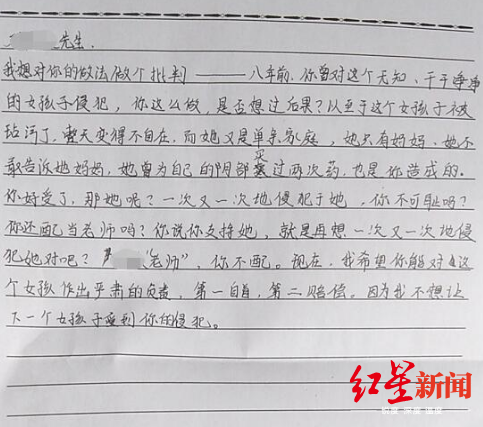 先生.
我想对你的做法做个批判——八年前.你曾对这个无知、干干净净
的女孩子侵犯，你这么做，是否想过后果？以至于这个女孩子被
玷污了，整天变得不自在.而她又是单亲家庭，她只有妈妈.她不
敢告诉她妈妈，她曾为自己的阴部买过两次药，也是你造成的.
你好受了，那她呢？一次又一次地侵犯于她，你不可耻吗？
你还配当老师吗？你说你支持她，就是再想一次又一次地侵
犯她对吧？"老师"，你不配。现在，我希望你能对这
个女孩作出严肃的负责，第一自首，第二赔偿。因为我不想让
下一个女孩子受到你的侵犯。
红星新闻
锐度 深度 温度